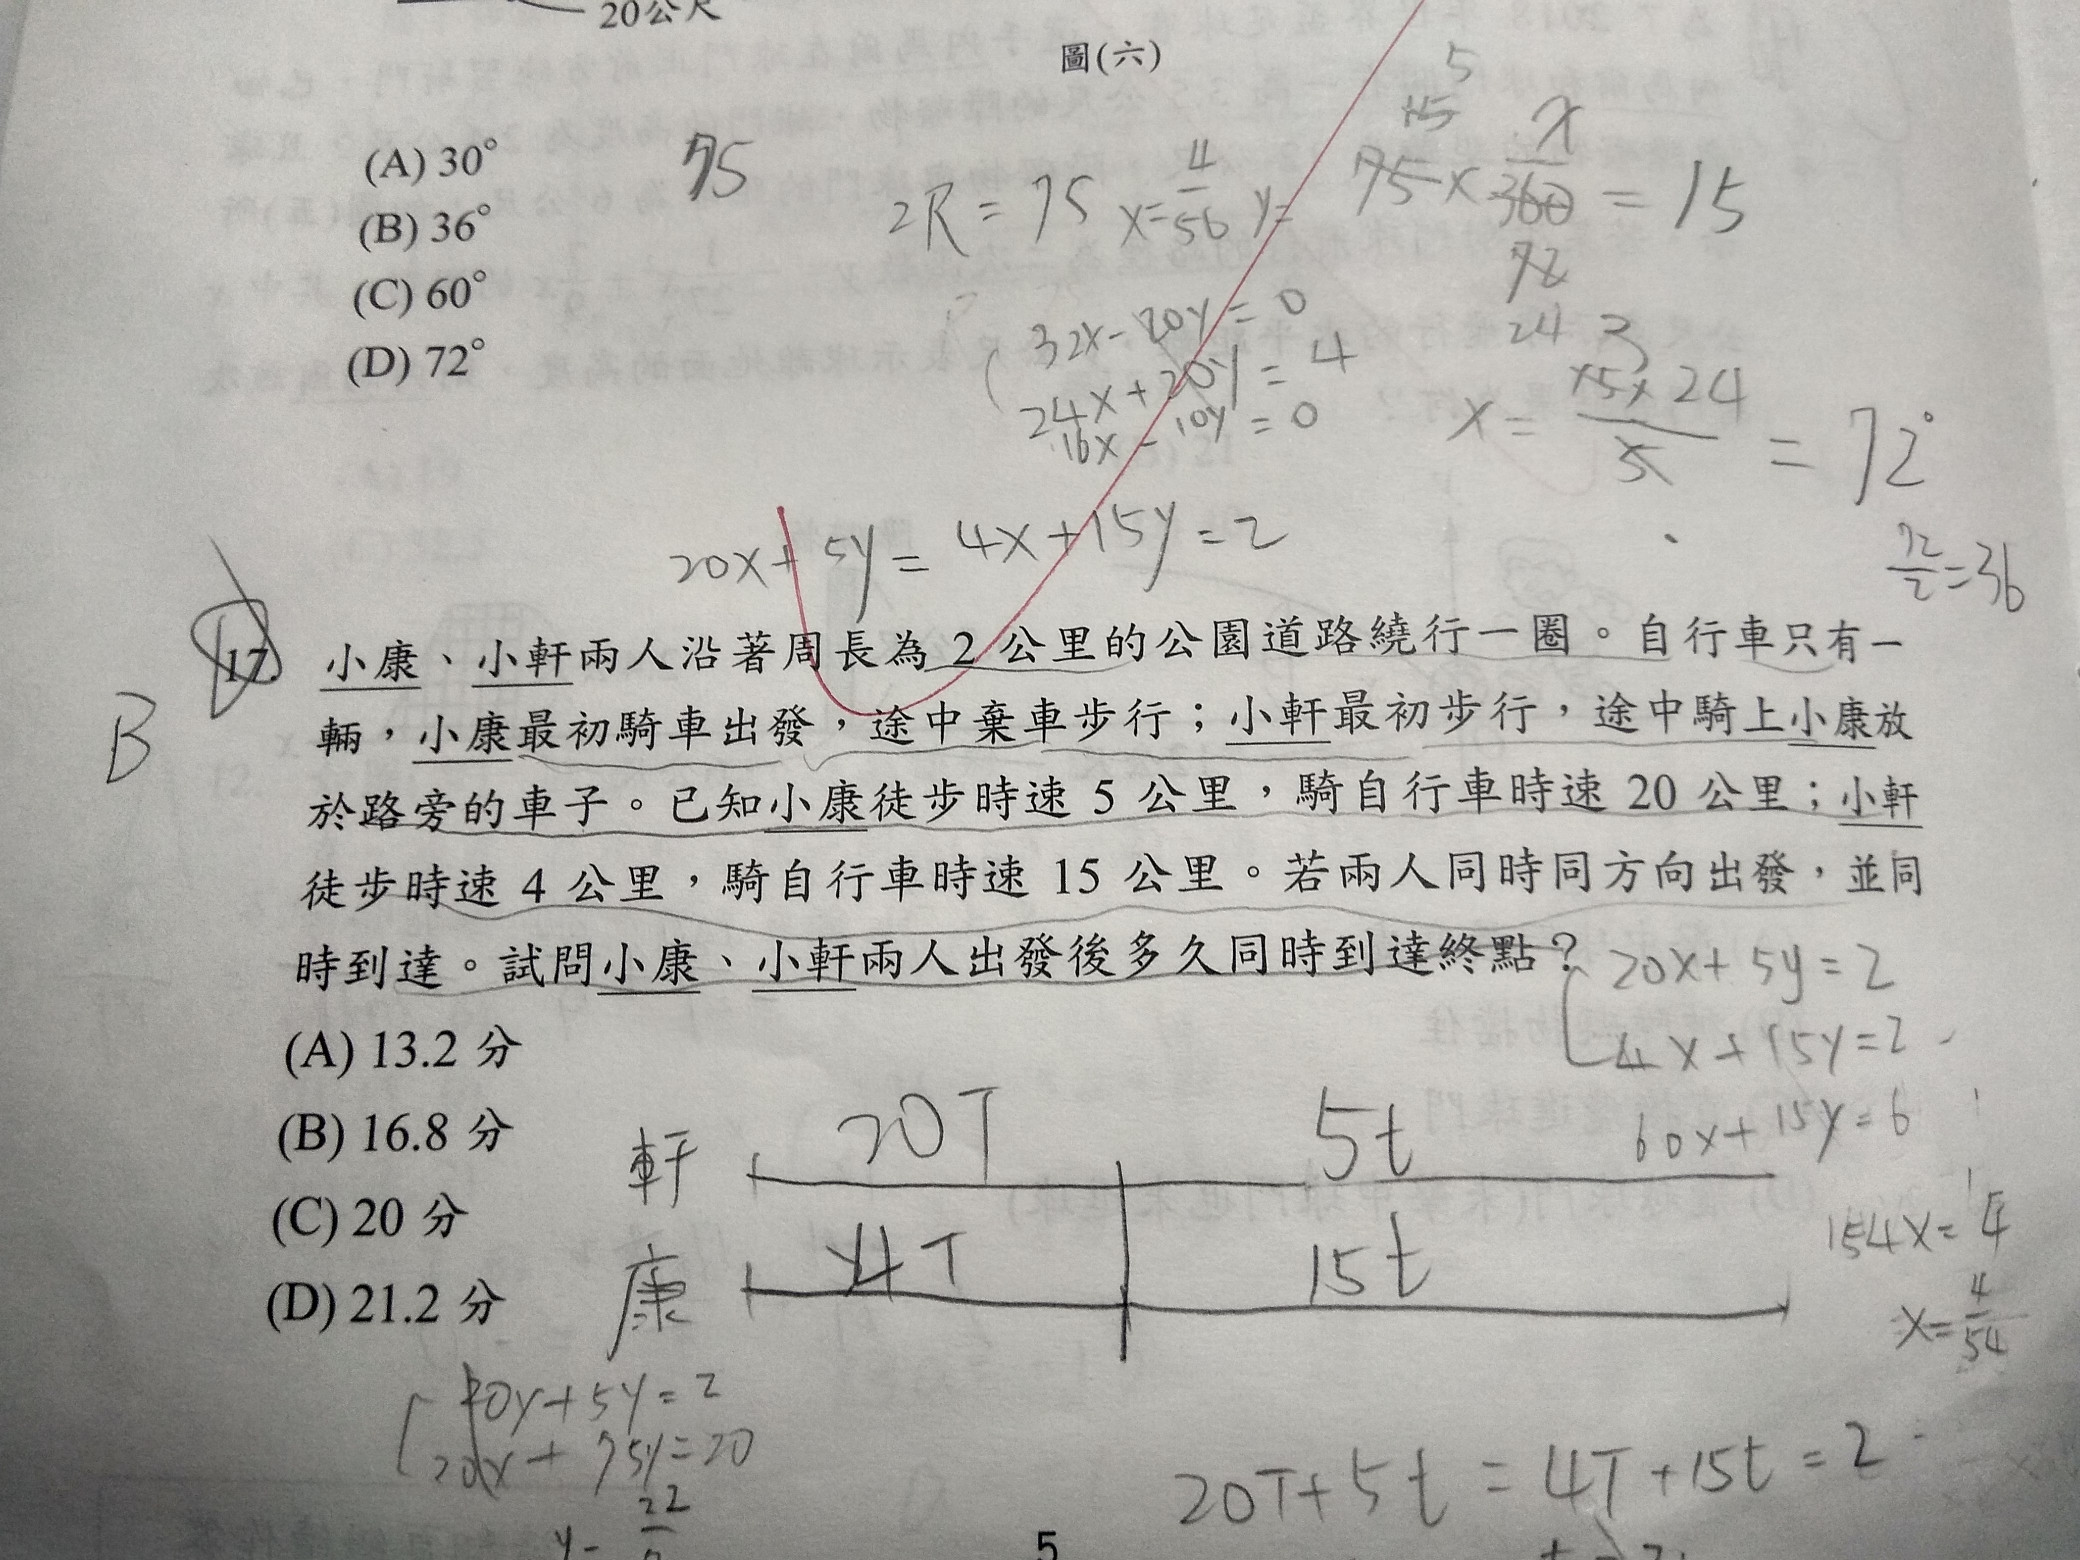 20公尺
圖(六)
(A) 30°
(B) 36°
(C) 60°
(D) 72°
75
2R = 75
x = 4/56 y =
5
15
75 × x/360 = 15
72
24
32x - 20y = 0
24x + 20y = 4
16x - 10y = 0
3
x = 15 × 24 / 5 = 72°
72/2 = 36
20x + 5y = 4x + 15y = 2
B
17. 小康、小軒兩人沿著周長為 2 公里的公園道路繞行一圈。自行車只有一
輛,小康最初騎車出發,途中棄車步行;小軒最初步行,途中騎上小康放
於路旁的車子。已知小康徒步時速 5 公里,騎自行車時速 20 公里;小軒
徒步時速 4 公里,騎自行車時速 15 公里。若兩人同時同方向出發,並同
時到達。試問小康、小軒兩人出發後多久同時到達終點?
20x + 5y = 2
4x + 15y = 2
60x + 15y = 6
(A) 13.2 分
(B) 16.8 分
(C) 20 分
(D) 21.2 分
軒 20T 5t
康 4T 15t
x = 4/54
20x + 75y = 20
22
20T + 5t = 4T + 15t = 2
5